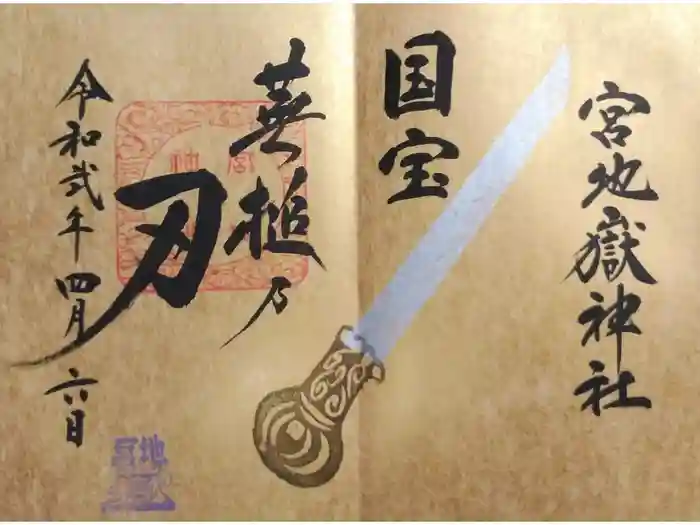 宮地嶽神社
国宝
蕪槌乃
刃
令和弐年四月六日
宮地